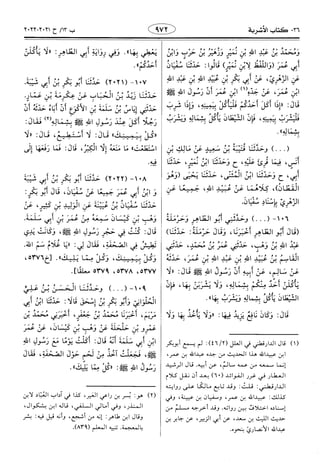 ٣٦- كتاب الأشربة
٩٧٢
ب ١٣/ ح ٢٠٢١-٢٠٢٢
وَمُحَمَّدُ بْنُ عَبْدِ اللهِ بْنِ نُمَيْرٍ وَزُهَيْرُ بْنُ حَرْبٍ وَابْنُ
أَبِي عُمَرَ (وَاللَّفْظُ لِابْنِ نُمَيْرٍ) قَالُوا: حَدَّثَنَا سُفْيَانُ
عَنِ الزُّهْرِيِّ، عَنْ أَبِي بَكْرِ بْنِ عُبَيْدِ اللهِ بْنِ عَبْدِ اللهِ
ابْنِ عُمَرَ، عَنْ جَدِّهِ(١) ابْنِ عُمَرَ أَنَّ رَسُولَ اللهِ ﷺ
قَالَ: «إِذَا أَكَلَ أَحَدُكُمْ فَلْيَأْكُلْ بِيَمِينِهِ، وَإِذَا شَرِبَ
فَلْيَشْرَبْ بِيَمِينِهِ، فَإِنَّ الشَّيْطَانَ يَأْكُلُ بِشِمَالِهِ وَيَشْرَبُ
بِشِمَالِهِ».
(...) وَحَدَّثَنَا قُتَيْبَةُ بْنُ سَعِيدٍ عَنْ مَالِكِ بْنِ
أَنَسٍ، فِيمَا قُرِئَ عَلَيْهِ، ح وَحَدَّثَنَا ابْنُ نُمَيْرٍ، حَدَّثَنَا
أَبِي، ح وَحَدَّثَنَا ابْنُ الْمُثَنَّى، حَدَّثَنَا يَحْيَى (وَهُوَ
الْقَطَّانُ)، كِلَاهُمَا عَنْ عُبَيْدِ اللهِ، جَمِيعًا عَنِ
الزُّهْرِيِّ بِإِسْنَادِ سُفْيَانَ.
١٠٦- (...) وَحَدَّثَنِي أَبُو الطَّاهِرِ وَحَرْمَلَةُ
(قَالَ أَبُو الطَّاهِرِ: أَخْبَرَنَا، وَقَالَ حَرْمَلَةُ: حَدَّثَنَا)
عَبْدُ اللهِ بْنُ وَهْبٍ، حَدَّثَنِي عُمَرُ بْنُ مُحَمَّدٍ، حَدَّثَنِي
الْقَاسِمُ بْنُ عُبَيْدِ اللهِ بْنِ عَبْدِ اللهِ بْنِ عُمَرَ، حَدَّثَهُ
عَنْ سَالِمٍ، عَنْ أَبِيهِ أَنَّ رَسُولَ اللهِ ﷺ قَالَ: «لَا
يَأْكُلَنَّ أَحَدٌ مِنْكُمْ بِشِمَالِهِ، وَلَا يَشْرَبَنَّ بِهَا، فَإِنَّ
الشَّيْطَانَ يَأْكُلُ بِشِمَالِهِ وَيَشْرَبُ بِهَا».
قَالَ: وَكَانَ نَافِعٌ يَزِيدُ فِيهَا: «وَلَا يَأْخُذُ بِهَا وَلَا
يُعْطِي بِهَا». وَفِي رِوَايَةِ أَبِي الطَّاهِرِ: «لَا يَأْكُلَنَّ
أَحَدُكُمْ».
١٠٧- (٢٠٢١) حَدَّثَنَا أَبُو بَكْرِ بْنُ أَبِي شَيْبَةَ،
حَدَّثَنَا زَيْدُ بْنُ الْحُبَابِ عَنْ عِكْرِمَةَ بْنِ عَمَّارٍ،
حَدَّثَنِي إِيَاسُ بْنُ سَلَمَةَ بْنِ الْأَكْوَعِ أَنَّ أَبَاهُ حَدَّثَهُ أَنَّ
رَجُلًا أَكَلَ عِنْدَ رَسُولِ اللهِ ﷺ بِشِمَالِهِ(٢) فَقَالَ:
«كُلْ بِيَمِينِكَ» قَالَ: لَا أَسْتَطِيعُ، قَالَ: «لَا
اسْتَطَعْتَ» مَا مَنَعَهُ إِلَّا الْكِبْرُ، قَالَ: فَمَا رَفَعَهَا إِلَى
فِيهِ.
١٠٨- (٢٠٢٢) حَدَّثَنَا أَبُو بَكْرِ بْنُ أَبِي شَيْبَةَ
وَ ابْنُ أَبِي عُمَرَ جَمِيعًا عَنْ سُفْيَانَ، قَالَ أَبُو بَكْرٍ:
حَدَّثَنَا سُفْيَانُ بْنُ عُيَيْنَةَ عَنِ الْوَلِيدِ بْنِ كَثِيرٍ، عَنْ
وَهْبِ بْنِ كَيْسَانَ سَمِعَهُ مِنْ عُمَرَ بْنِ أَبِي سَلَمَةَ،
قَالَ: كُنْتُ فِي حَجْرِ رَسُولِ اللهِ ﷺ، وَكَانَتْ يَدِي
تَطِيشُ فِي الصَّحْفَةِ، فَقَالَ لِي: «يَا غُلَامُ سَمِّ اللهَ،
وَكُلْ بِيَمِينِكَ، وَكُلْ مِمَّا يَلِيكَ». [خ٥٣٧٦،
٥٣٧٧، ٥٣٧٨ معلقا].
١٠٩- (...) وَحَدَّثَنَا الْحَسَنُ بْنُ عَلِيٍّ
الْحُلْوَانِيُّ وَأَبُو بَكْرِ بْنُ إِسْحَاقَ قَالَا: حَدَّثَنَا ابْنُ أَبِي
مَرْيَمَ، أَخْبَرَنَا مُحَمَّدُ بْنُ جَعْفَرٍ، أَخْبَرَنِي مُحَمَّدُ بْنُ
عَمْرِو بْنِ حَلْحَلَةَ عَنْ وَهْبِ بْنِ كَيْسَانَ، عَنْ عُمَرَ
ابْنِ أَبِي سَلَمَةَ أَنَّهُ قَالَ: أَكَلْتُ يَوْمًا مَعَ رَسُولِ اللهِ
ﷺ، فَجَعَلْتُ آخُذُ مِنْ لَحْمٍ حَوْلَ الصَّحْفَةِ، فَقَالَ
رَسُولُ اللهِ ﷺ: «كُلْ مِمَّا يَلِيكَ».
(١) قال الدارقطني في العلل (٤٦/٢): لم يسمع أبوبكر
ابن عبيدالله هذا الحديث من جده عبدالله بن عمر،
إنما سمعه من عمه سالم، عن أبيه. قال الرشيد
العطار في غرر الفوائد (٦٠) بعد أن نقل كلام
الدارقطني: قلت: وقد تابع مالكا على روايته
كذلك: عبيدالله بن عمر، وسفيان بن عيينة، وفي
إسناده اختلاف بين رواته. وقد أخرجه مسلم من
حديث الليث بن سعد، عن أبي الزبير، عن جابر بن
عبدالله الأنصاري بنحوه.
(٢) هو: بُسر بن راعي العَيْر، كذا في آداب العَبّاد لابن
المنذر، وفي أمالي السلفي، قاله ابن بشكوال،
وقال ابن طاهر: إنه من أشجع، وأنه قيل فيه: بشر
بالمعجمة. تنبيه المعلم (٨٣٩).